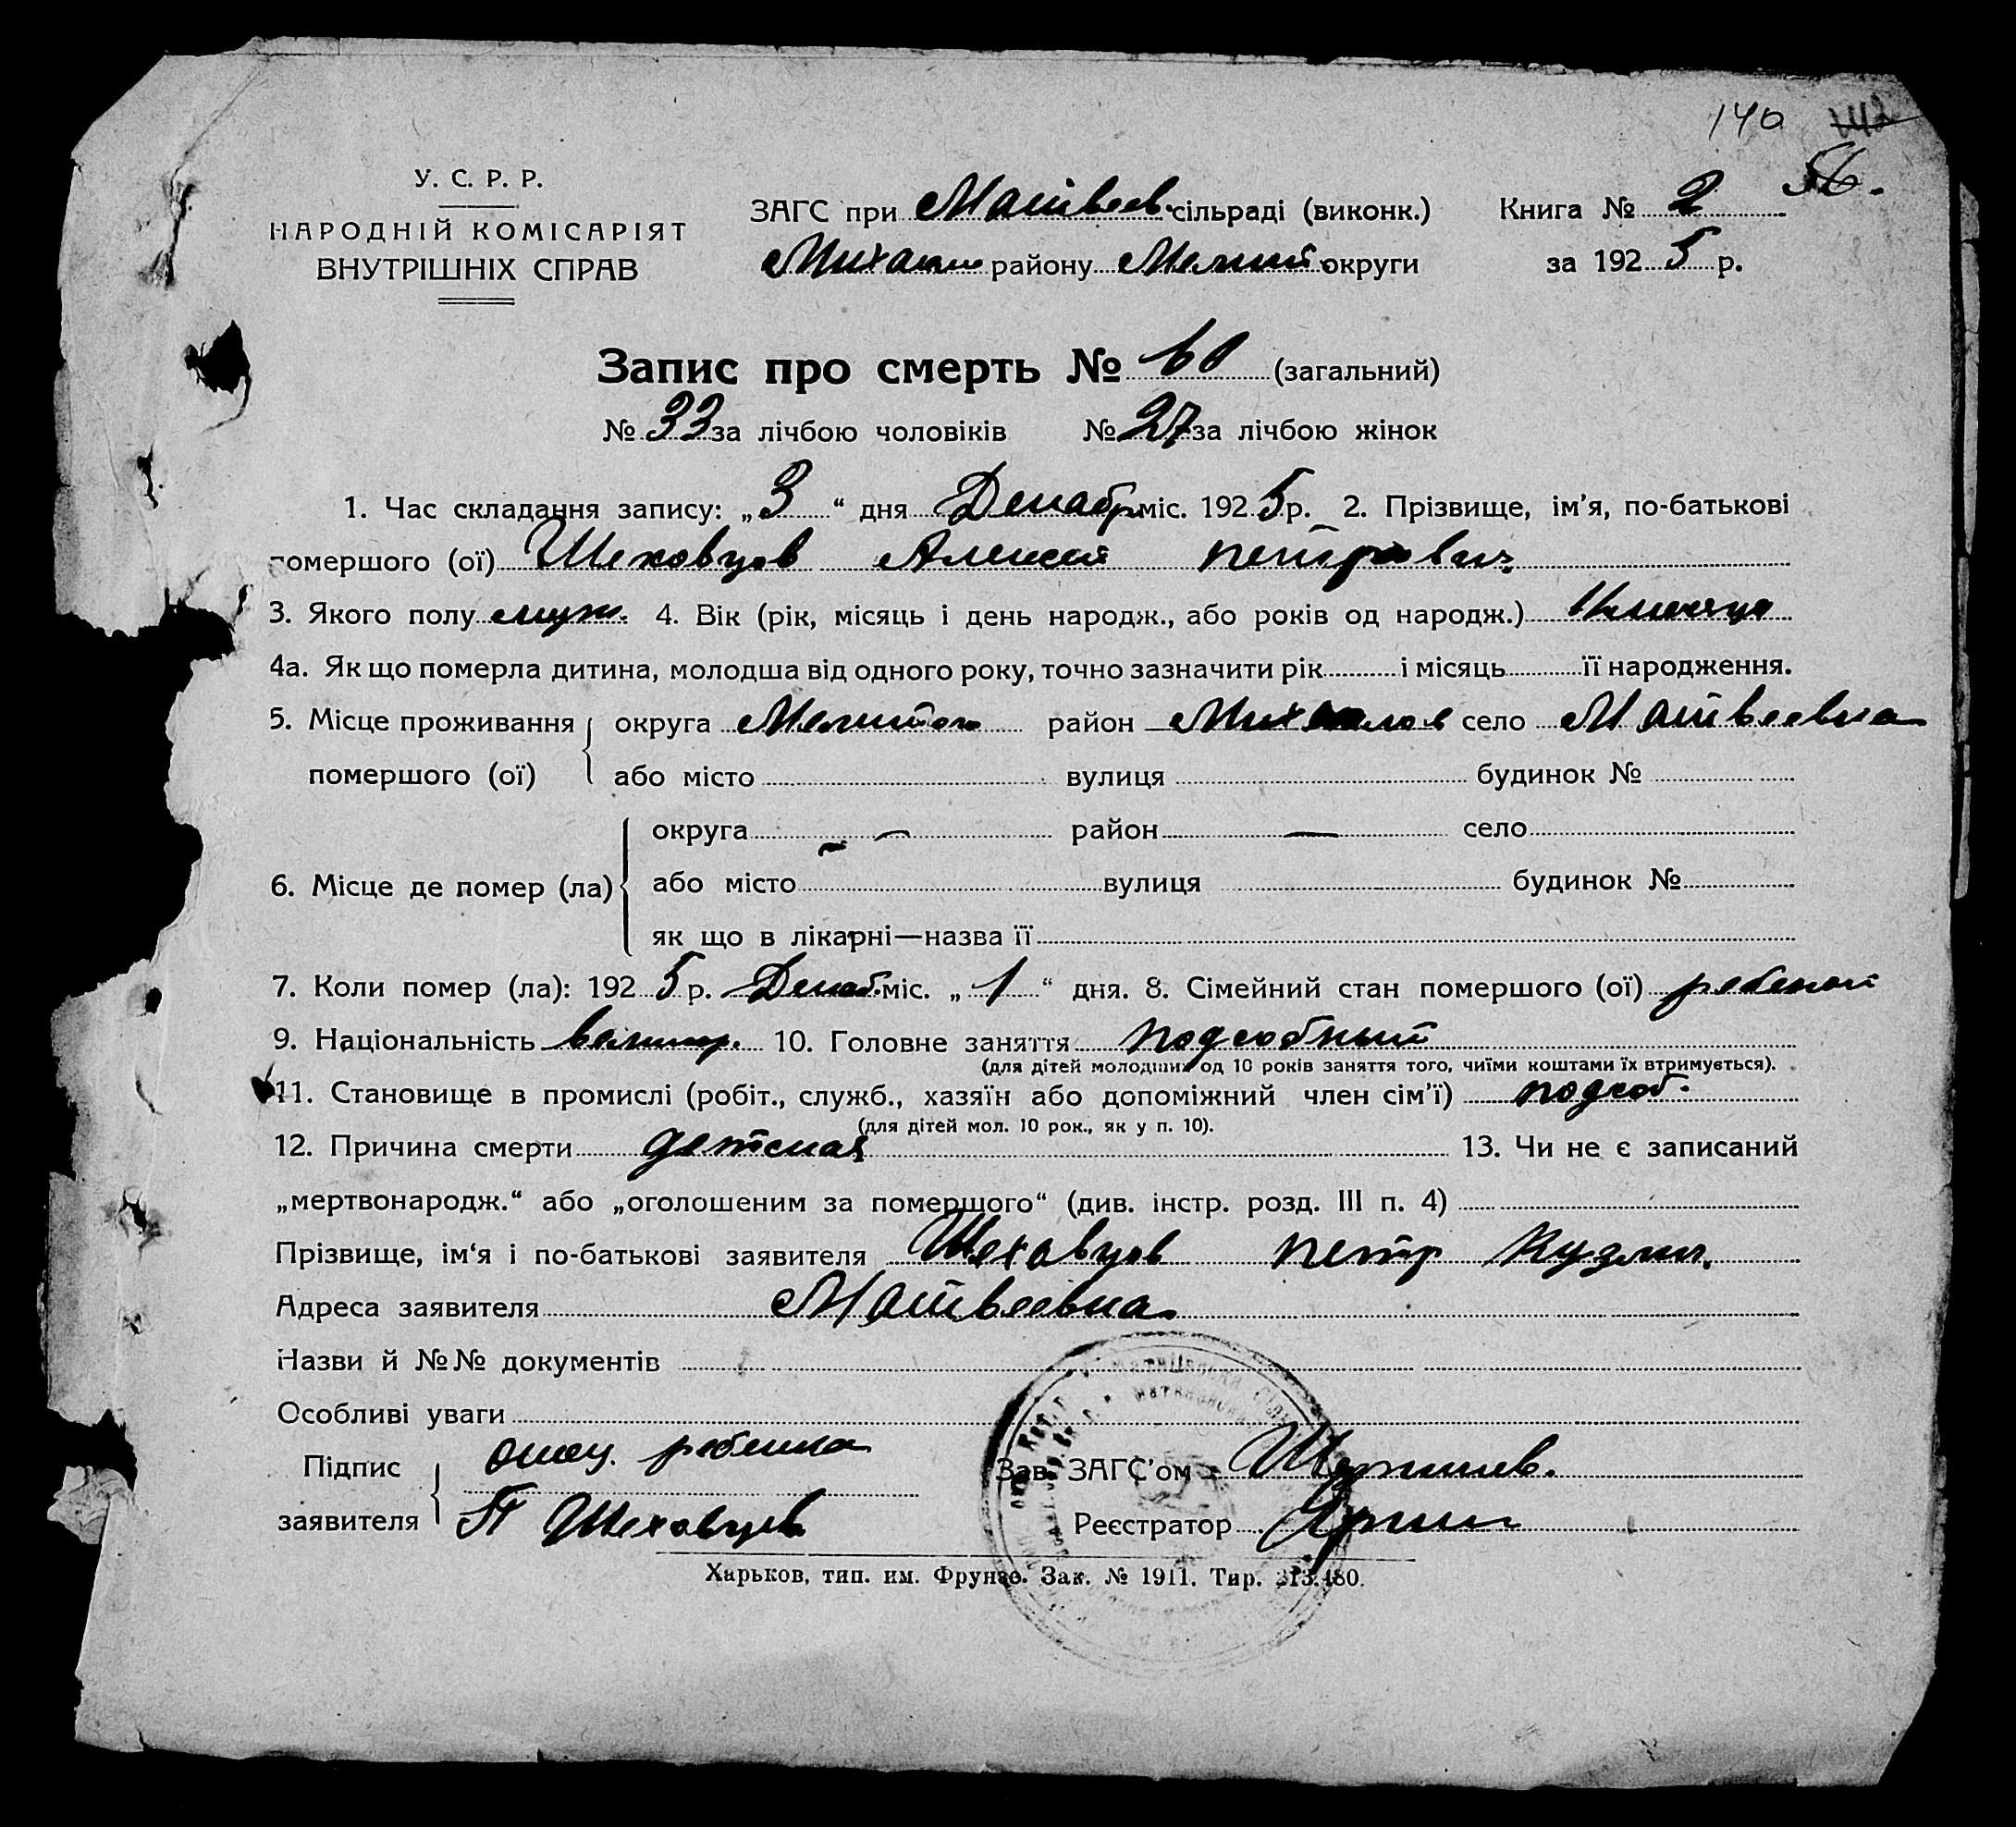 140
56.
У. С. Р. Р.
НАРОДНІЙ КОМІСАРІЯТ
ВНУТРІШНІХ СПРАВ
ЗАГС при Матвеев. сільраді (виконк.) Книга № 2
Михайл району Мелит округи за 1925 р.
Запис про смерть № 60 (загальний)
№ 33 за лічбою чоловіків № 27 за лічбою жінок
1. Час складання запису: „3“ дня Декабр міс. 1925 р. 2. Прізвище, ім'я, по-батькові
помершого (ої) Шеховцов Алексей Петрович.
3. Якого полу муж. 4. Вік (рік, місяць і день народж., або років од народж.) месяца
4а. Як що померла дитина, молодша від одного року, точно зазначити рік і місяць її народження.
5. Місце проживання округа Мелитоп район Михайлов село Матвеевка
помершого (ої) або місто вулиця будинок №
округа — район — село
6. Місце де помер (ла) або місто вулиця будинок №
як що в лікарні—назва її
7. Коли помер (ла): 1925 р. Декаб. міс. „1“ дня. 8. Сімейний стан помершого (ої) ребенок
9. Національність великор. 10. Головне заняття подсобный
(для дітей молодших од 10 років заняття того, чиїми коштами їх втримується).
11. Становище в промислі (робіт., служб., хазяїн або допоміжний член сім'ї) подсоб.
(для дітей мол. 10 рок., як у п. 10).
12. Причина смерти детская 13. Чи не є записаний
„мертвонародж.“ або „оголошеним за помершого“ (див. інстр. розд. III п. 4)
Прізвище, ім'я і по-батькові заявителя Шеховцов Петр Кузмич.
Адреса заявителя Матвеевка
Назви й №№ документів
Особливі уваги
Підпис отец ребенка Зав. ЗАГС'ом
заявителя П Шеховцов Реєстратор
Харьков, тип. им. Фрунзе. Зак. № 1911. Тир. 313.480.